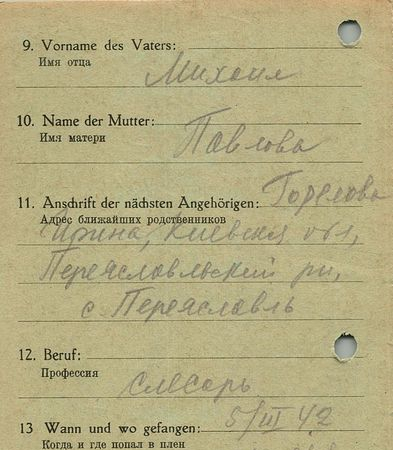 9. Vorname des Vaters:
Имя отца
Михаил
10. Name der Mutter:
Имя матери
Павлова
11. Anschrift der nächsten Angehörigen: Горелова
Адрес ближайших родственников
Ирина, Киевская обл,
Переяславльский рн,
с. Переяславль
12. Beruf:
Профессия
слесарь
13 Wann und wo gefangen: 5/III 42
Когда и где попал в плен